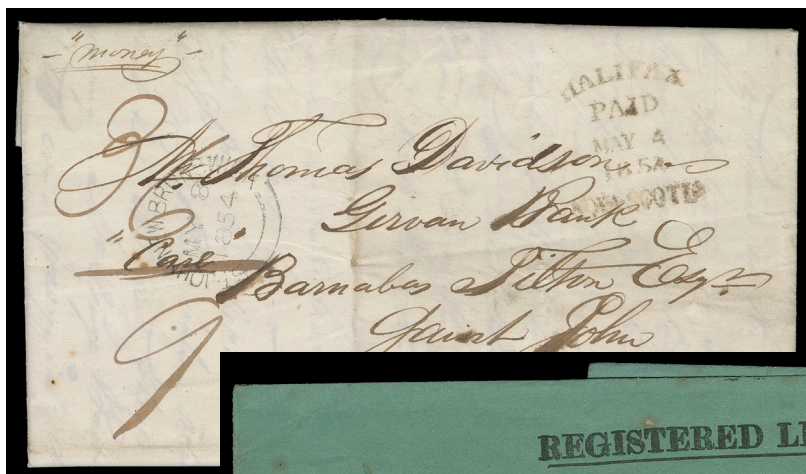 "Money"
HALIFAX
PAID
MAY 4
1854
NOVA SCOTIA
3
Mr. Thomas Davidson
Girvan Bank
"Care"
Barnabas Tilton Esqr.
Saint John
MY 8
1854
9
REGISTERED LE